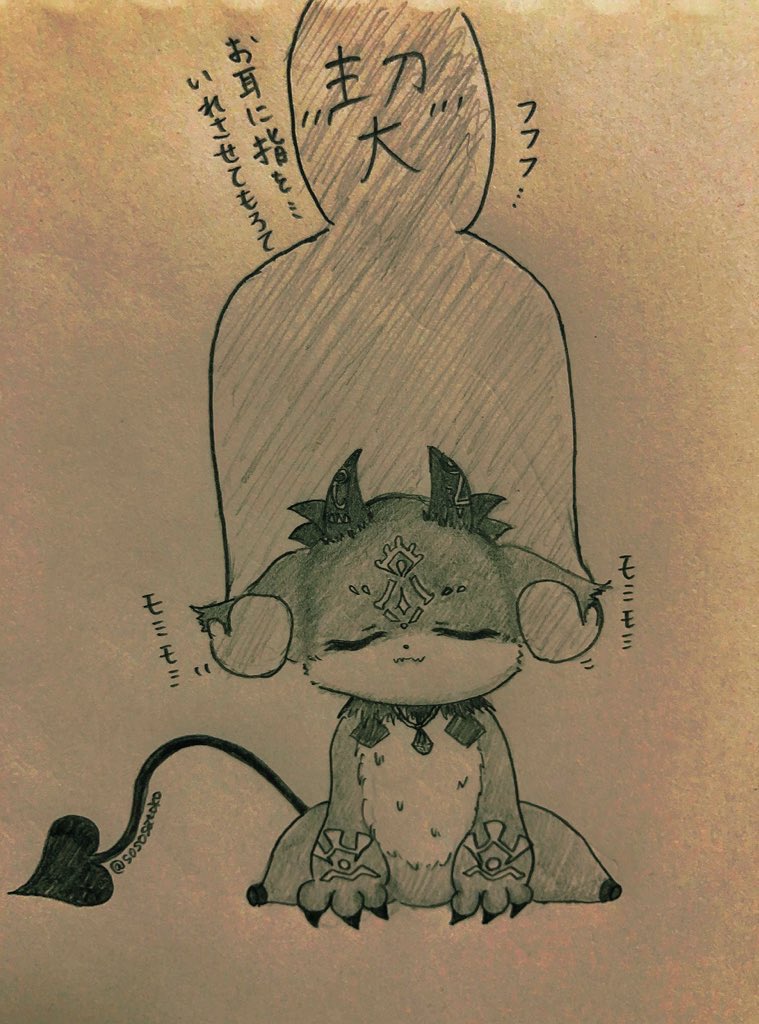 契
フフフ…
お耳に指を…
いれさせてもろて
モミモミ
モミモミ